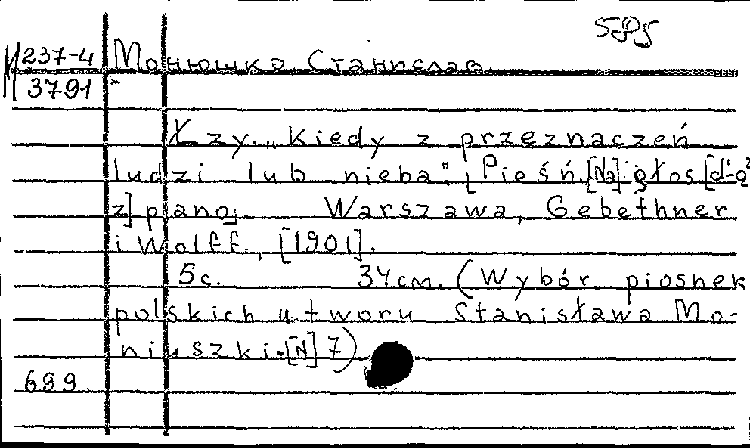 585
М 237-4 Монюшко Станислав.
3791
Łzy. „Kiedy z przeznaczeń
ludzi lub nieba". Pieśń. [Na] głos [d-o
z] piano. Warszawa, Gebethner
i Wolff, [1901].
5 c. 34 cm. (Wybór piosnek
polskich utworu Stanisława Mo-
niuszki. [N] 7)
689